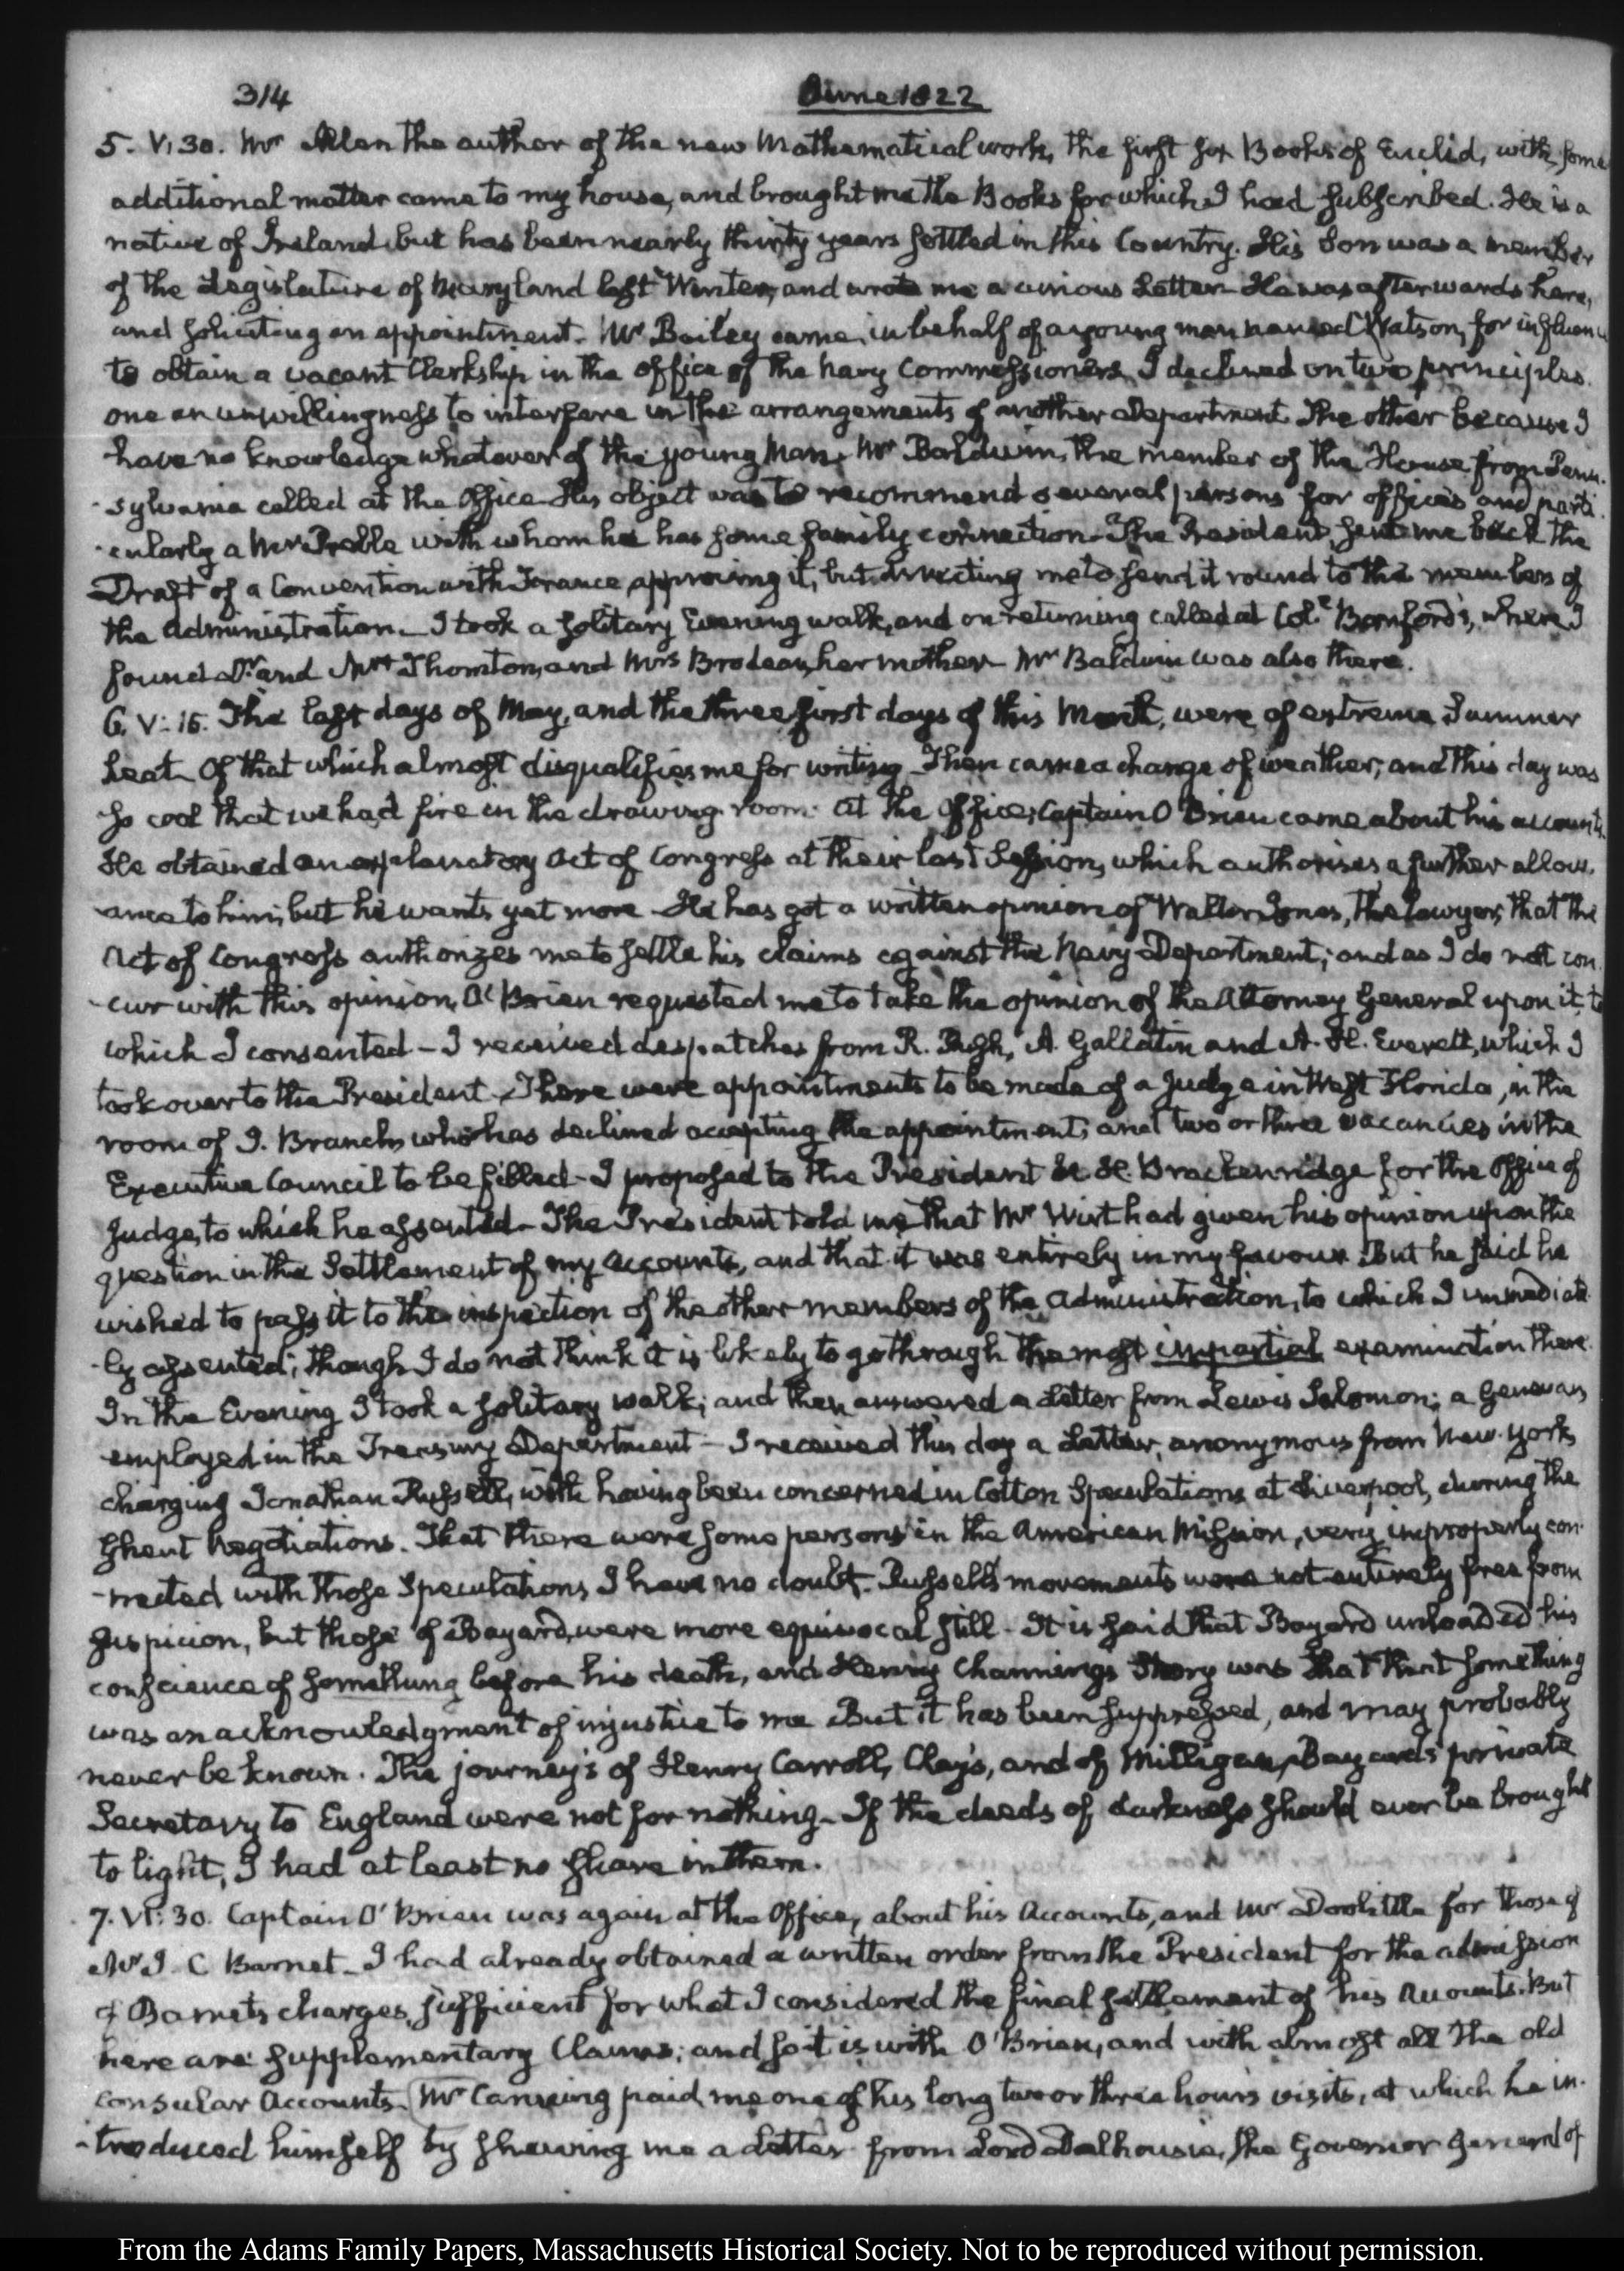 314
June 1822
5. V:30. Mr Allen the author of the new Mathematical work, the first six Books of Euclid, with some
additional matter came to my house, and brought me the Books for which I had subscribed. He is a
native of Ireland but has been nearly thirty years settled in this Country. His Son was a member
of the Legislature of Maryland last Winter, and wrote me a curious Letter. He was afterwards here,
and soliciting an appointment. Mr Bailey came, in behalf of a young man named Watson, for influence
to obtain a vacant Clerkship in the office of the Navy Commissioners. I declined on two principles.
one an unwillingness to interfere in the arrangements of another Department. The other because I
have no knowledge whatever of the young Man. Mr Baldwin, the member of the House from Penn-
-sylvania called at the Office. His object was to recommend several persons for offices and parti-
-cularly a Mr Preble with whom he has some family connection. The President sent me back the
Draft of a Convention with France, approving it, but directing me to send it round to the members of
the administration. I took a solitary Evening walk, and on returning called at Col. Bomford's, where I
found Dr and Mrs Thornton, and Mrs Brodeau, her mother. Mr Baldwin was also there.
6. V:15. The last days of May, and the three first days of this Month, were of extreme Summer
heat. Of that which almost disqualifies me for writing. Then came a change of weather; and this day was
so cool that we had fire in the drawing room. At the Office, Captain O'Brien came about his accounts.
He obtained an explanatory Act of Congress at their last Session, which authorises a further allow-
-ance to him; but he wants yet more. He has got a written opinion of Walter Jones, the Lawyer, that the
Act of Congress authorizes me to settle his claims against the Navy Department; and as I do not con-
-cur with this opinion, O'Brien requested me to take the opinion of the Attorney General upon it, to
which I consented — I received despatches from R. Rush, A. Gallatin and A. H. Everett, which I
took over to the President. There were appointments to be made of a Judge in West Florida, in the
room of J. Branch, who has declined accepting the appointment; and two or three vacancies in the
Executive Council to be filled. I proposed to the President H. H. Brackenridge for the Office of
Judge, to which he assented. The President told me that Mr Wirt had given his opinion upon the
question in the Settlement of my Accounts, and that it was entirely in my favour. But he said he
wished to pass it to the inspection of the other members of the administration, to which I immediate-
-ly assented; though I do not think it is likely to go through the most impartial examination there.
In the Evening I took a solitary walk; and then answered a Letter from Lewis Salomon; a Genevan,
employed in the Treasury Department — I received this day a Letter, anonymous from New-York,
charging Jonathan Russell, with having been concerned in Cotton Speculations at Liverpool, during the
Ghent Negotiations. That there were some persons in the American Mission, very improperly con-
-nected with those Speculations I have no doubt. Russell's movements were not entirely free from
suspicion, but those of Bayard, were more equivocal still. It is said that Bayard unloaded his
conscience of something before his death, and Henry Channing's Story was that that something
was an acknowledgment of injustice to me. But it has been suppressed, and may probably
never be known. The journeys of Henry Carroll, Clay's, and of Milligan, Bayard's private
Secretary to England were not for nothing. If the deeds of darkness should ever be brought
to light, I had at least no share in them.
7. VI:30. Captain O'Brien was again at the Office, about his Accounts, and Mr Doolittle for those of
Mr I. C Barnet. I had already obtained a written order from the President for the admission
of Barnet's charges, sufficient for what I considered the final settlement of his Accounts. But
here are supplementary Claims; and so it is with O'Brien, and with almost all the old
consular Accounts. Mr Canning paid me one of his long two or three hours visits, at which he in-
-troduced himself by shewing me a Letter from Lord Dalhousie, the Governor General of
From the Adams Family Papers, Massachusetts Historical Society. Not to be reproduced without permission.